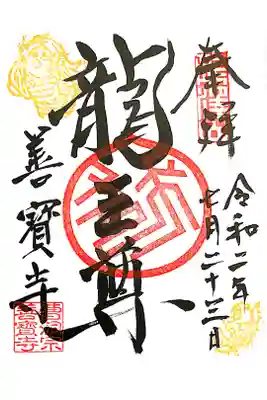 奉拝
令和二年
七月二十三日
龍王尊
善寳寺
曹洞宗
善寳寺